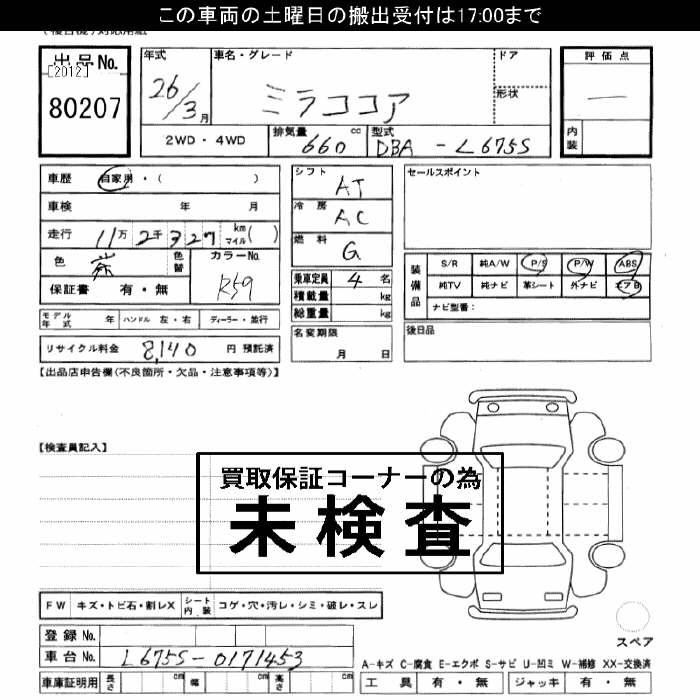 この車両の土曜日の搬出受付は17:00まで
出品No.
[2012]
80207
年式 26/3月
車名・グレード ミラココア
ドア
形状
2WD・4WD
排気量 660 cc
型式 DBA-L675S
評価点
—
内装
車歴 自家用・( )
車検 年 月
走行 11万2千327 km マイル( )
色 茶 色替
カラーNo. R59
保証書 有・無
モデル年式 年 ハンドル 左・右 ディーラー・並行
リサイクル料金 8,140 円 預託済
シフト AT
冷房 AC
燃料 G
乗車定員 4 名
積載量 kg
総重量 kg
名変期限 月 日
セールスポイント
装備品
S/R 純A/W P/S P/W ABS
純TV 純ナビ 革シート 外ナビ エアB
ナビ型番:
後日品
【出品店申告欄(不良箇所・欠品・注意事項等)】
【検査員記入】
買取保証コーナーの為
未検査
FW キズ・トビ石・割レX シート内装 コゲ・穴・汚レ・シミ・破レ・スレ
登録No.
車台No. L675S-0171453
車庫証明用 長さ cm 幅 cm 高さ cm
スペア
A-キズ C-腐食 E-エクボ S-サビ U-凹ミ W-補修 XX-交換済
工具 有・無 ジャッキ 有・無